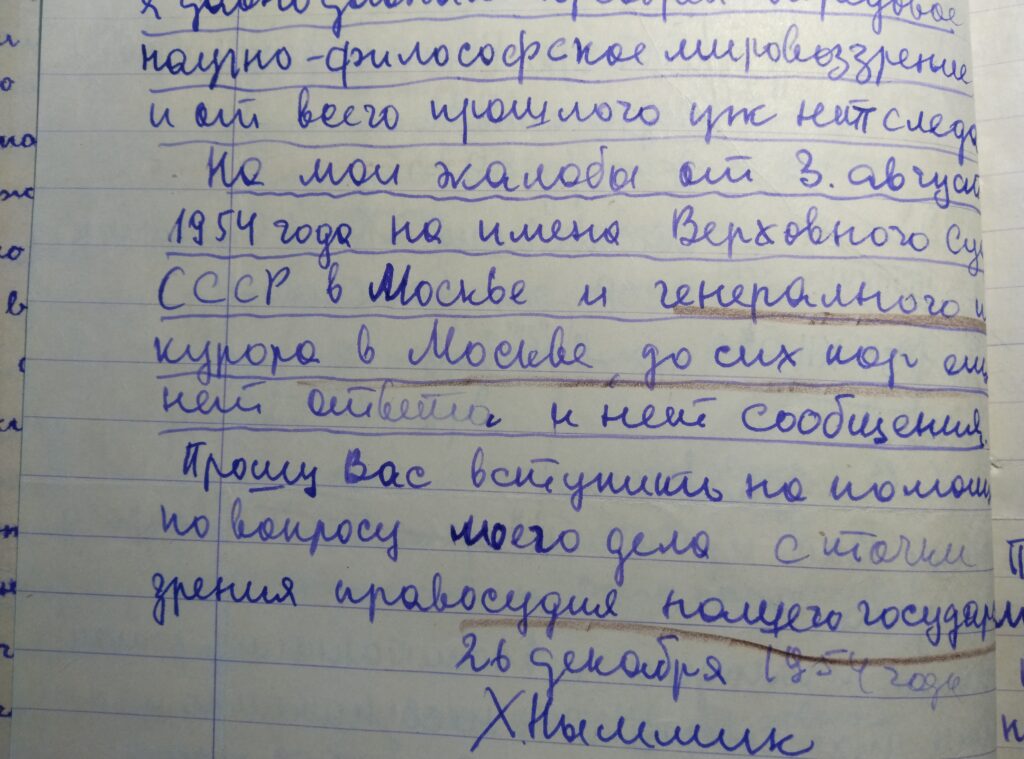 научно-философское мировоззрение
и от всего прошлого уж нет следа
На мои жалобы от 3. август
1954 года на имена Верховного Су
СССР в Москве и генерального п
курора в Москве, до сих пор ещ
нет ответа и нет сообщения.
Прошу Вас вступить на помощ
по вопросу моего дела с точки
зрения правосудия нашего государ
26 декабря 1954 года
Х.Ныммик